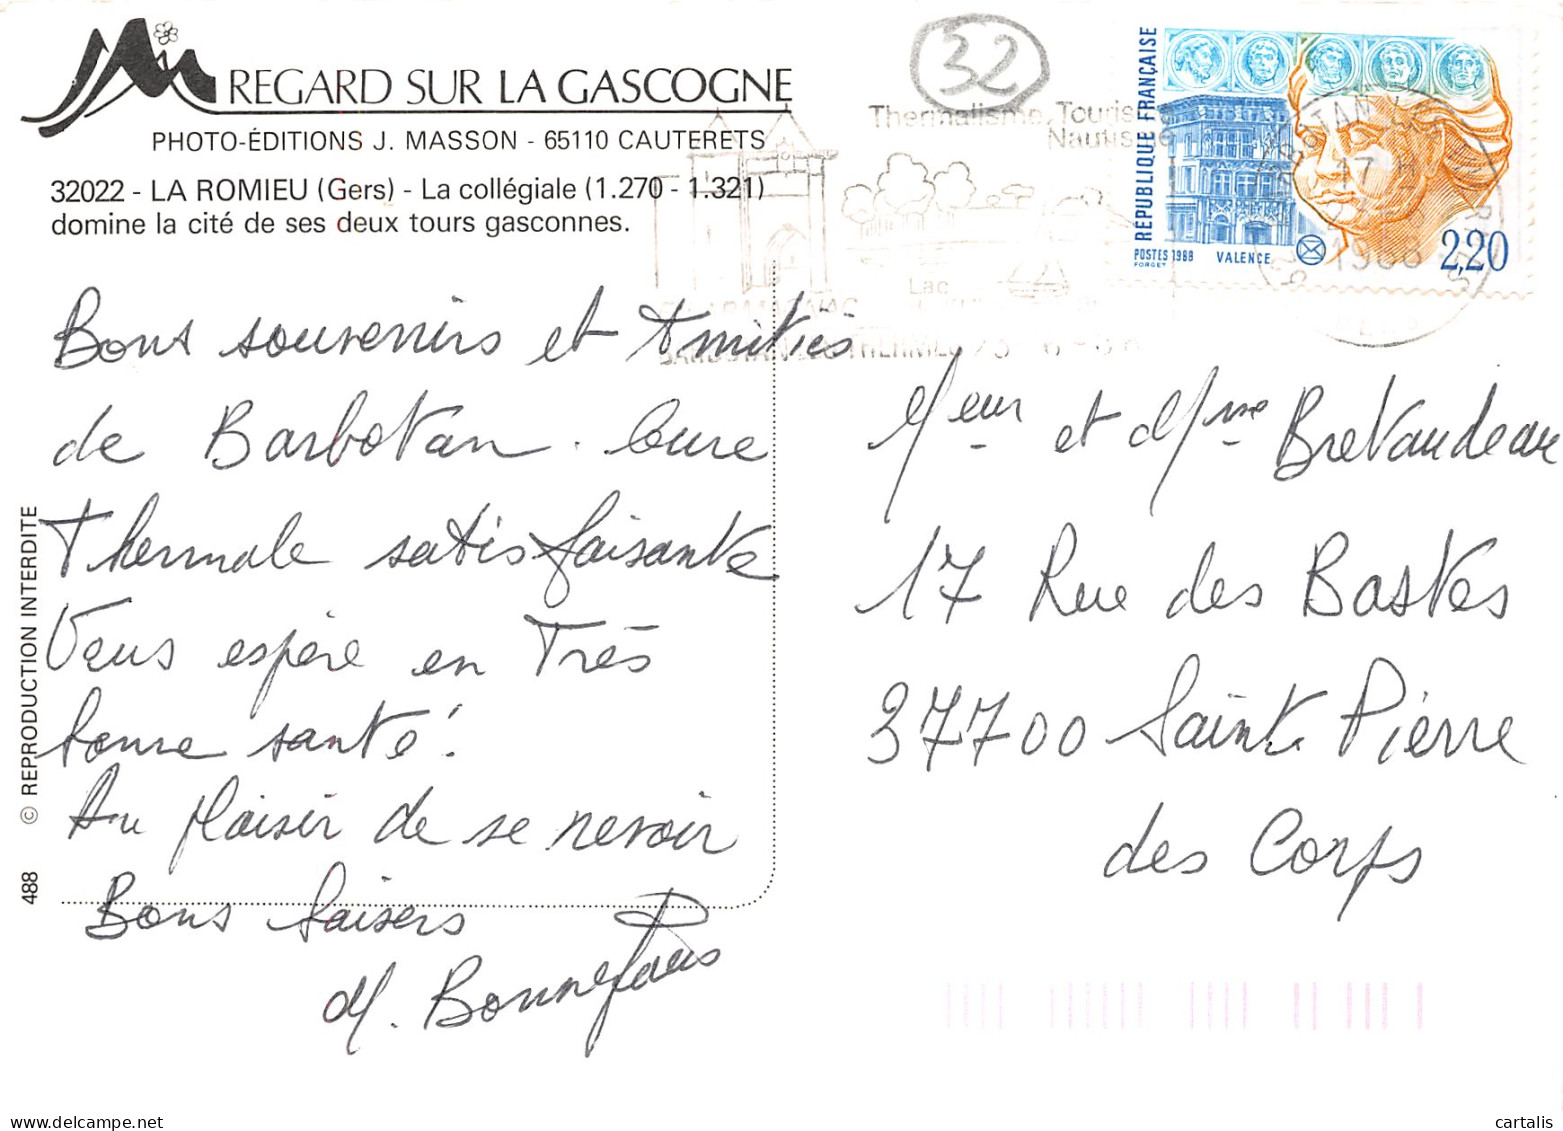 REGARD SUR LA GASCOGNE
PHOTO-ÉDITIONS J. MASSON - 65110 CAUTERETS
32022 - LA ROMIEU (Gers) - La collégiale (1.270 - 1.321)
domine la cité de ses deux tours gasconnes.
32
Thermalisme, Tourisme
Nautisme
Lac
REPUBLIQUE FRANÇAISE
POSTES 1988 VALENCE
FORGET
2,20
17 H
1988
Bons souvenirs et Amitiés
de Barbotan. Cure
Thermale satisfaisante
Vous espère en Très
bonne santé!
Au plaisir de se revoir
Bons baisers
M. Bonnefous
Meur et Mme Bretaudeau
17 Rue des Bastes
37700 Sainte Pierre
des Corps
© REPRODUCTION INTERDITE
488
cartalis